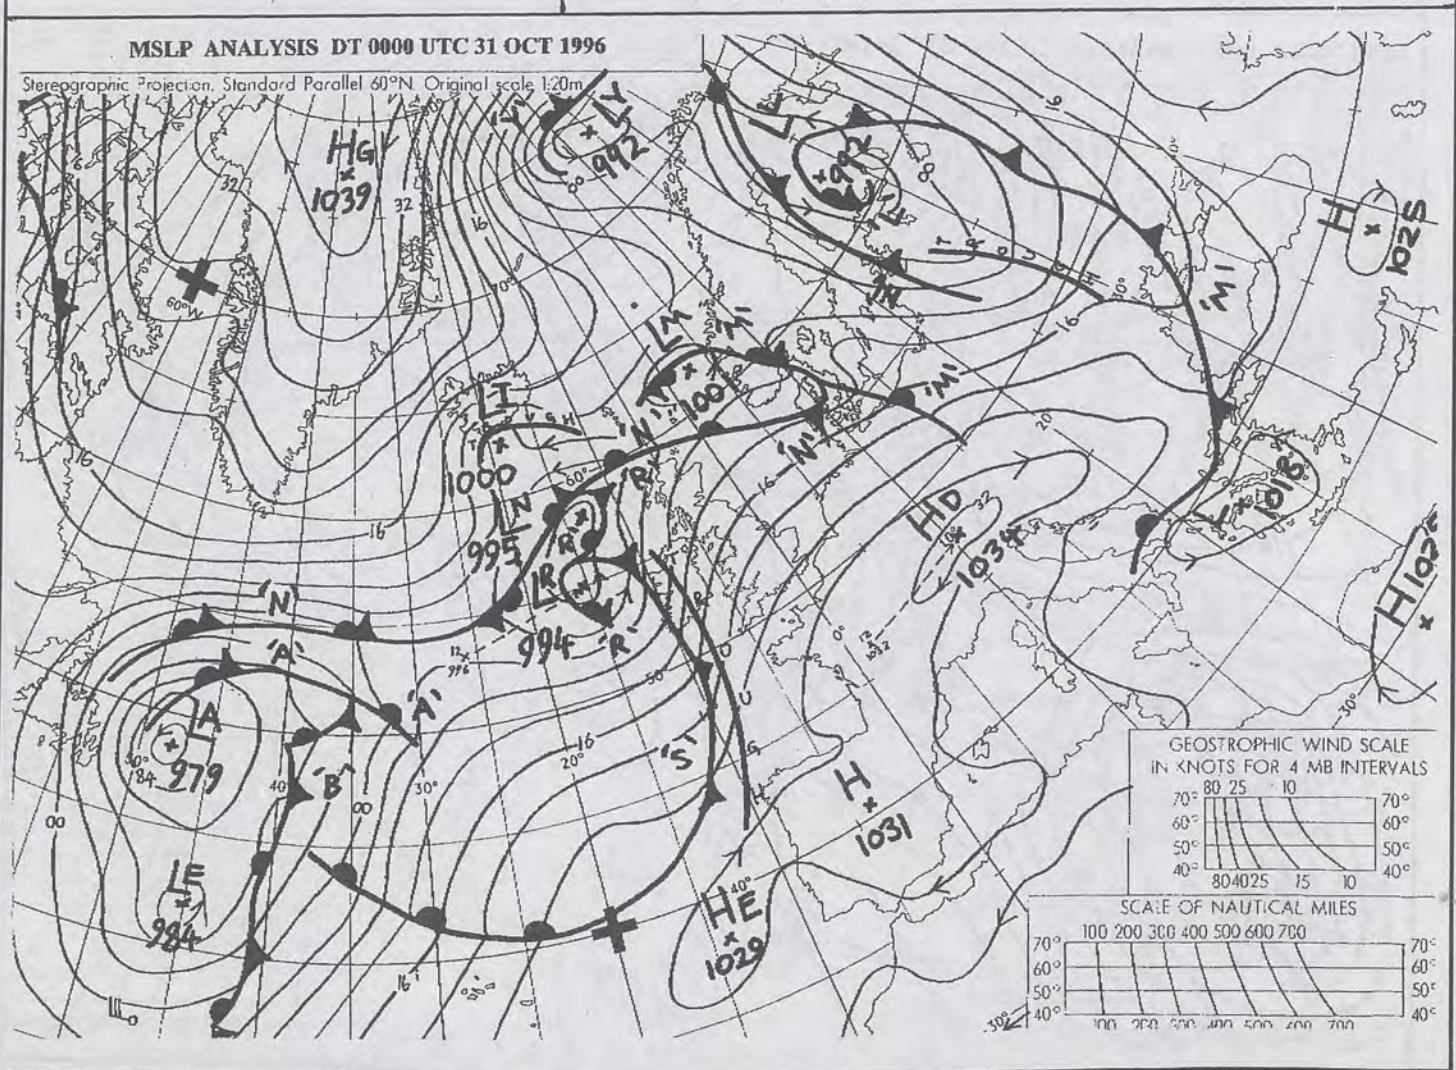 MSLP ANALYSIS DT 0000 UTC 31 OCT 1996
Stereographic Projection, Standard Parallel 60°N. Original scale 1:20m
HG
1039
32
32
60°W
16
16
70°
LY
992
LF
992
08
TROUGH
'N'
'M'
H
1025
16
16
20
LM
'M'
100
'M'
LI
1000
'N'
'N'
'R'
60°
LN
995
R
LR
994
'R'
16
16
HD
32
1034
L
1018
H
'N'
'A'
LA
979
50°
84
'A'
'B'
40
00
30°
00
12
996
50
16
20°
'S'
0°
H
1031
LE
984
L
16
40°
HE
1029
30°
30°
GEOSTROPHIC WIND SCALE
IN KNOTS FOR 4 MB INTERVALS
80 25 10
70° 70°
60° 60°
50° 50°
40° 40°
80 40 25 15 10
SCALE OF NAUTICAL MILES
100 200 300 400 500 600 700
70° 70°
60° 60°
50° 50°
40° 40°
100 200 300 400 500 600 700